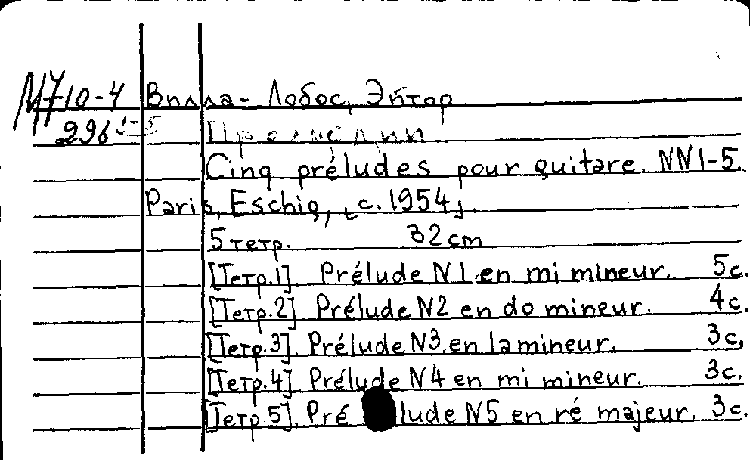 М710-4 Вилла-Лобос, Эйтор
296 1-5 Прелюдии
Cinq préludes pour guitare. NN1-5.
Paris, Eschig, [c.1954].
5 тетр. 32cm
[Тетр.1] Prélude N1 en mi mineur. 5c.
[Тетр.2] Prélude N2 en do mineur. 4c.
[Тетр.3]. Prélude N3 en la mineur. 3c.
[Тетр.4]. Prélude N4 en mi mineur. 3c.
[Тетр.5]. Pré lude N5 en ré majeur. 3c.